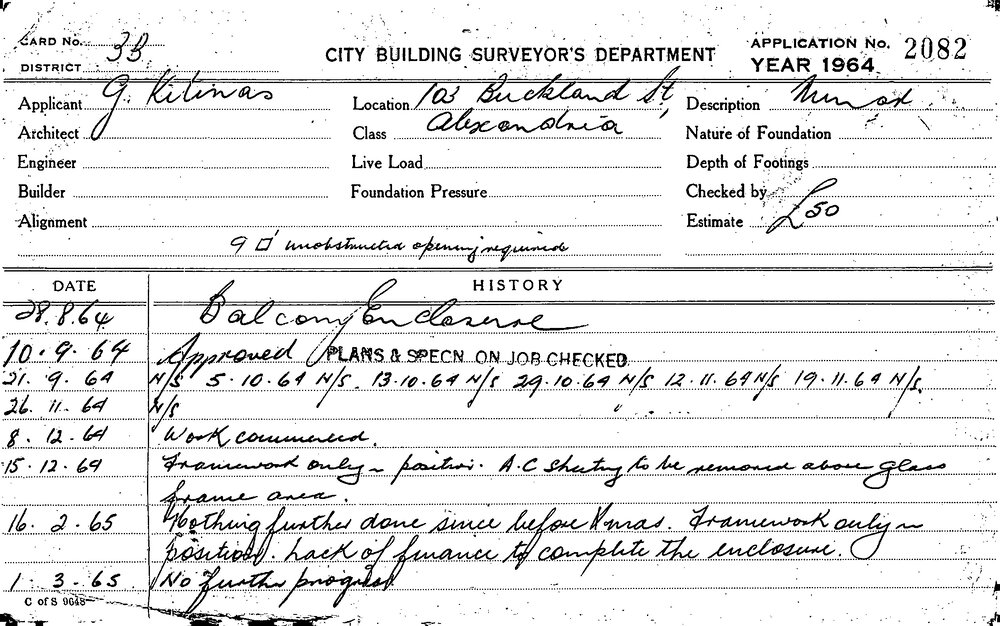 CARD No. 3B
DISTRICT
CITY BUILDING SURVEYOR'S DEPARTMENT
APPLICATION No. 2082
YEAR 1964
Applicant G. Kitinas
Location 103 Buckland St,
Description Minor
Architect
Class Alexandria
Nature of Foundation
Engineer
Live Load
Depth of Footings
Builder
Foundation Pressure
Checked by
Alignment
Estimate £50
9 □' unobstructed opening required
DATE HISTORY
28.8.64 Balcony Enclosure
10.9.64 Approved PLANS & SPECN ON JOB CHECKED
21.9.64 N/S 5.10.64 N/S. 13.10.64 N/S 29.10.64 N/S 12.11.64 N/S 19.11.64 N/S.
26.11.64 N/S
8.12.64 Work commenced.
15.12.64 Framework only in position. A.C sheeting to be removed above glass
frame area.
16.2.65 Nothing further done since before Xmas. Framework only in
position. Lack of finance to complete the enclosure.
1.3.65 No further progress
C of S 9648